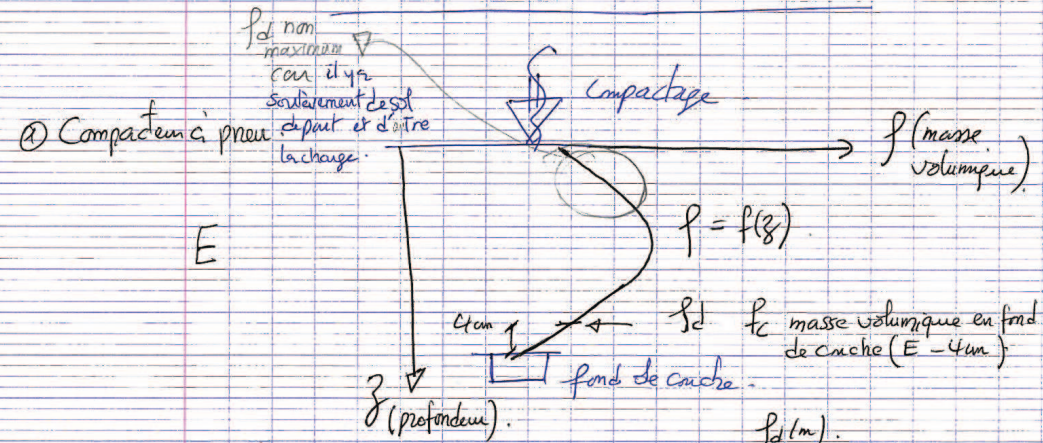 ρd non
maximum
car il y a
soulèvement de sol
départ et d'autre
la charge.
compactage
ⓐ Compacteur à pneu
ρ (masse
volumique)
E
ρ = f(z)
4cm
ρd ρc masse volumique en fond
de couche (E - 4cm)
fond de couche.
z
(profondeur).
ρd(m).